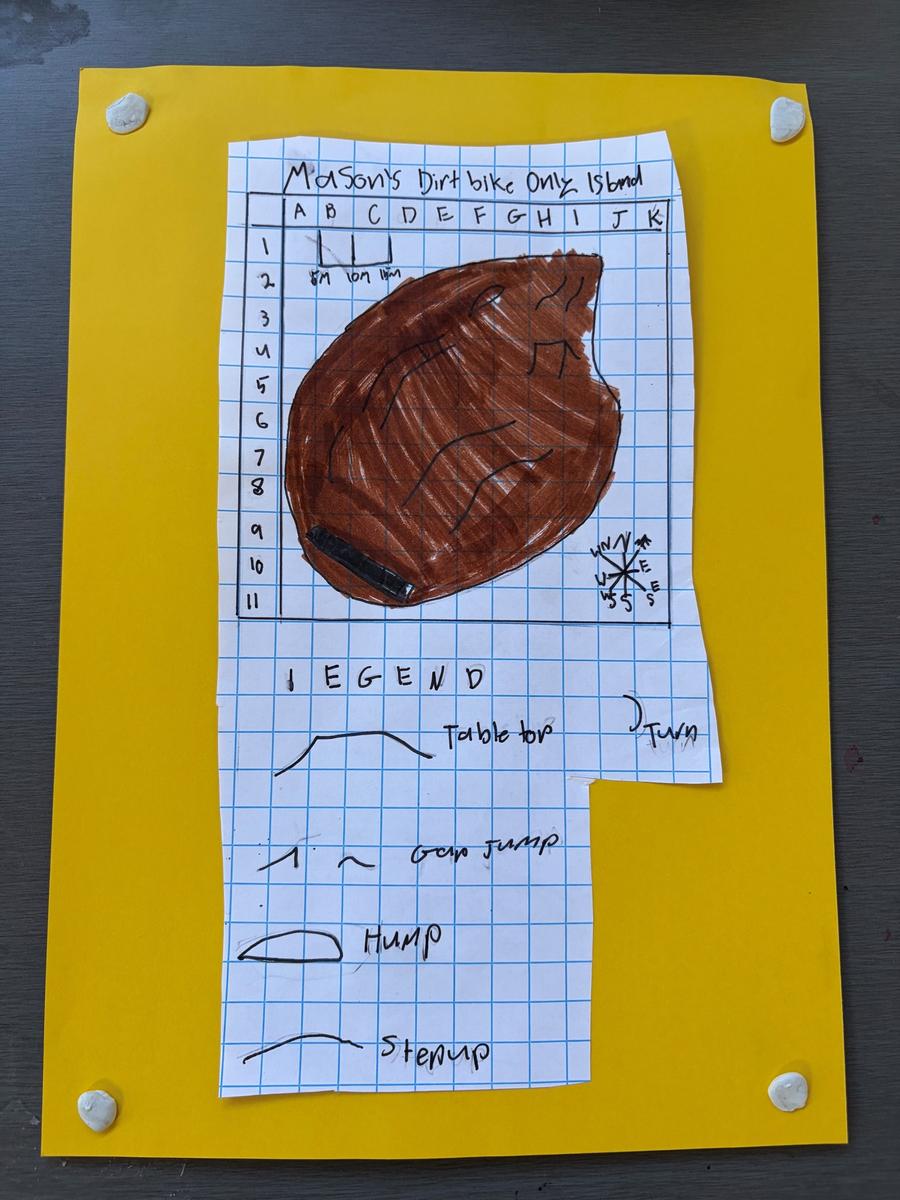 Mason's Dirt bike Only Island
A B C D E F G H I J K
1
2
3
4
5
6
7
8
9
10
11
5M 10M 15M
WN N
W E
WS S ES
LEGEND
Table top
Turn
Gap Jump
Hump
Stepup